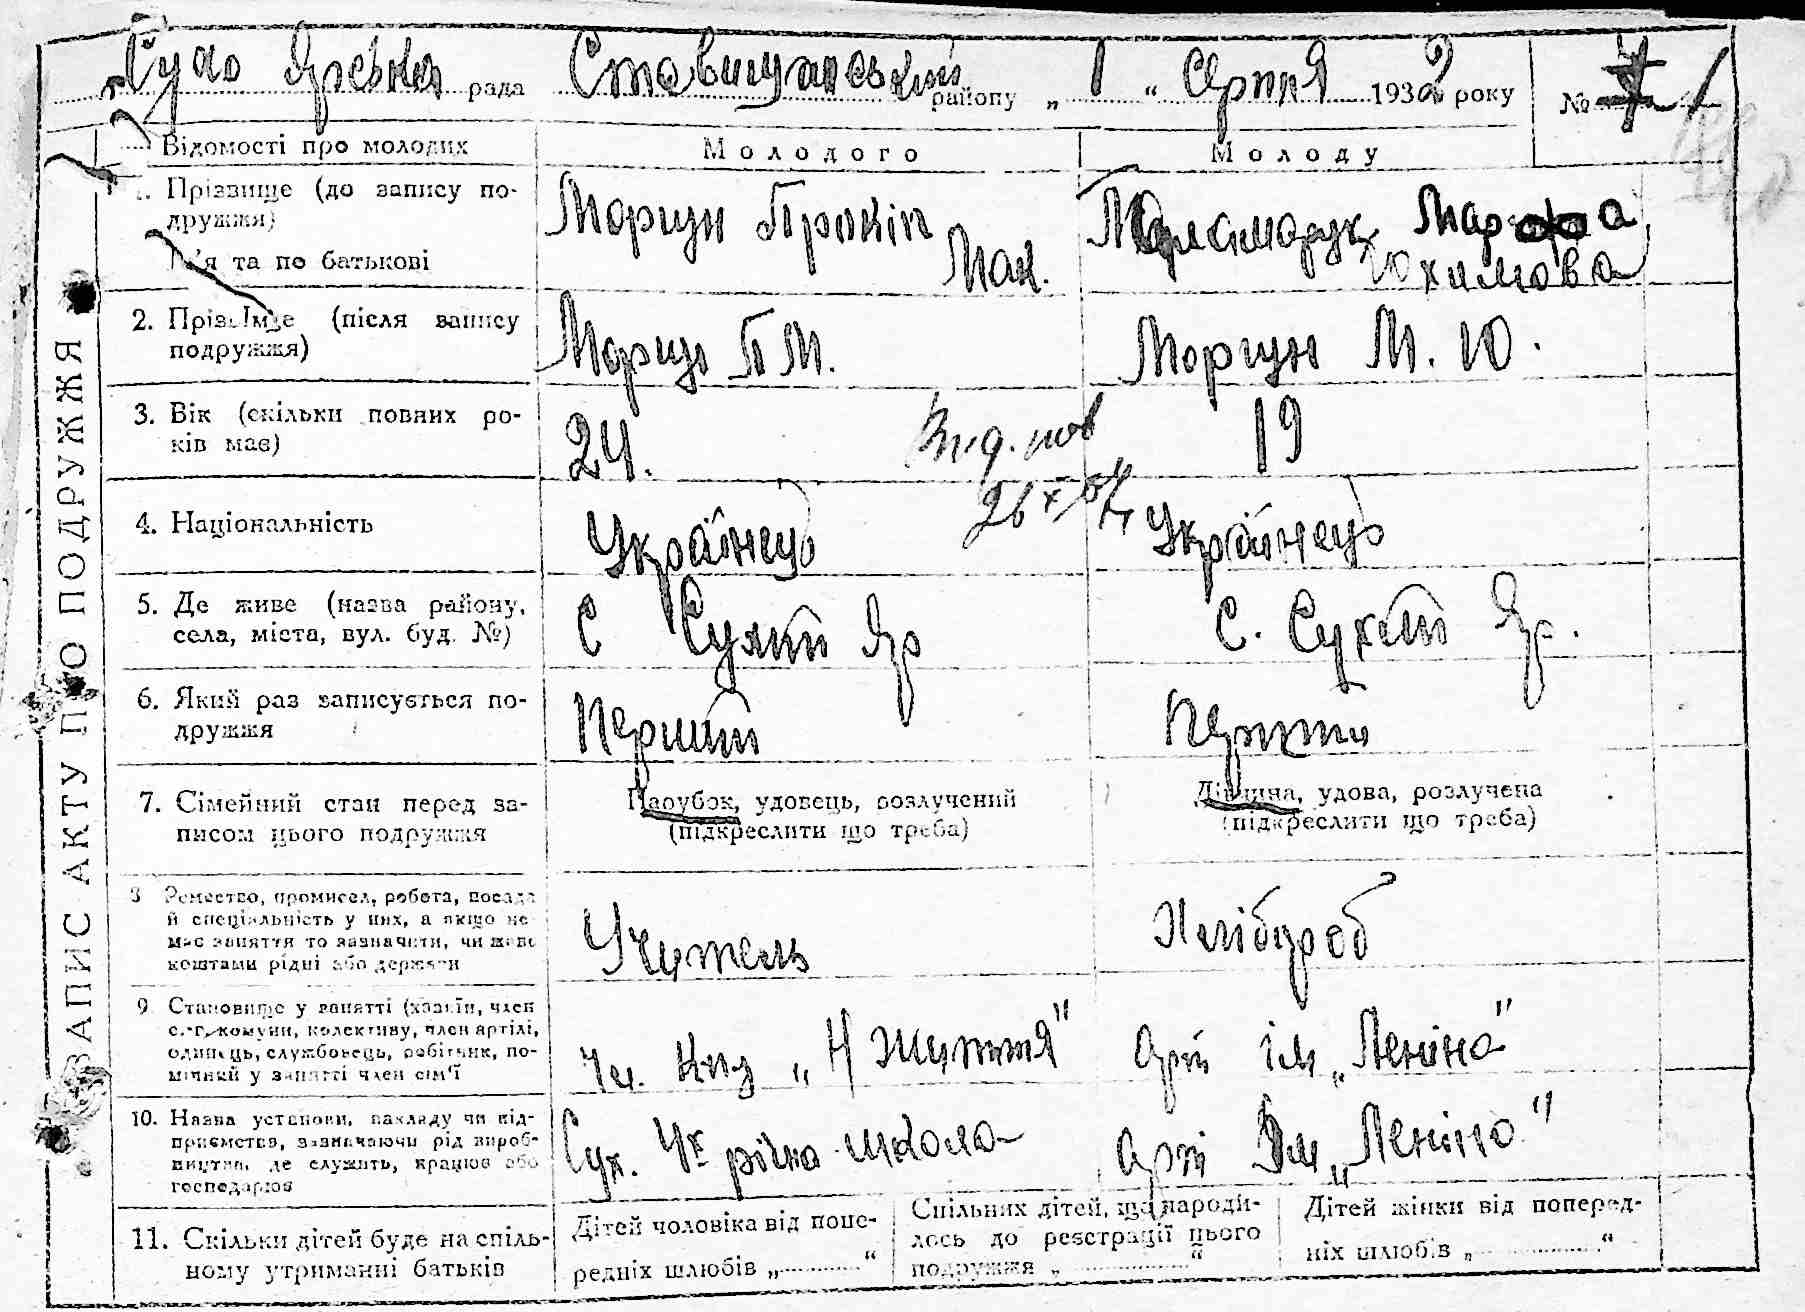 Сухо Ярська рада Ставищанський району „ 1 “ серпня 1932 року № 1
ЗАПИС АКТУ ПРО ПОДРУЖЖЯ
Відомості про молодих
Молодого
Молоду
1. Прізвище (до запису по-
дружжя)
Ім'я та по батькові
Моргун Прокіп
Мак.
Паламарук Марфа
Юхимова
2. Прізвище (після запису
подружжя)
Моргун П М.
Моргун М. Ю.
3. Вік (скільки повних ро-
ків має)
24.
19
4. Національність
Українець
Українець
5. Де живе (назва району,
села, міста, вул. буд. №)
С Сухий Яр
С. Сухий Яр.
6. Який раз записується по-
дружжя
Перший
7. Сімейний стан перед за-
писом цього подружжя
Парубок, удовець, розлучений
(підкреслити що треба)
Дівчина, удова, розлучена
(підкреслити що треба)
8 Ремество, промисел, робота, посада
й спеціяльність у них, а якщо не
має заняття то зазначити, чи живе
коштами рідні або держави
Учитель
Хлібороб
9. Становище у занятті (хазяїн, член
с.-г. комуни, колективу, член артілі,
одинець, службовець, робітник, по-
мічний у занятті член сім'ї
Чл. „Н Життя"
Арт ім „Леніна"
10. Назва установи, закладу чи під-
приємства, зазначаючи рід вироб-
ництва, де служить, працює або
господарює
Сух. 4х річна школа
Арті Ім „Леніна"
11. Скільки дітей буде на спіль-
ному утриманні батьків
Дітей чоловіка від попе-
редніх шлюбів „ “
Спільних дітей, що народи-
лось до реєстрації цього
подружжя „ “
Дітей жінки від поперед-
ніх шлюбів „ “